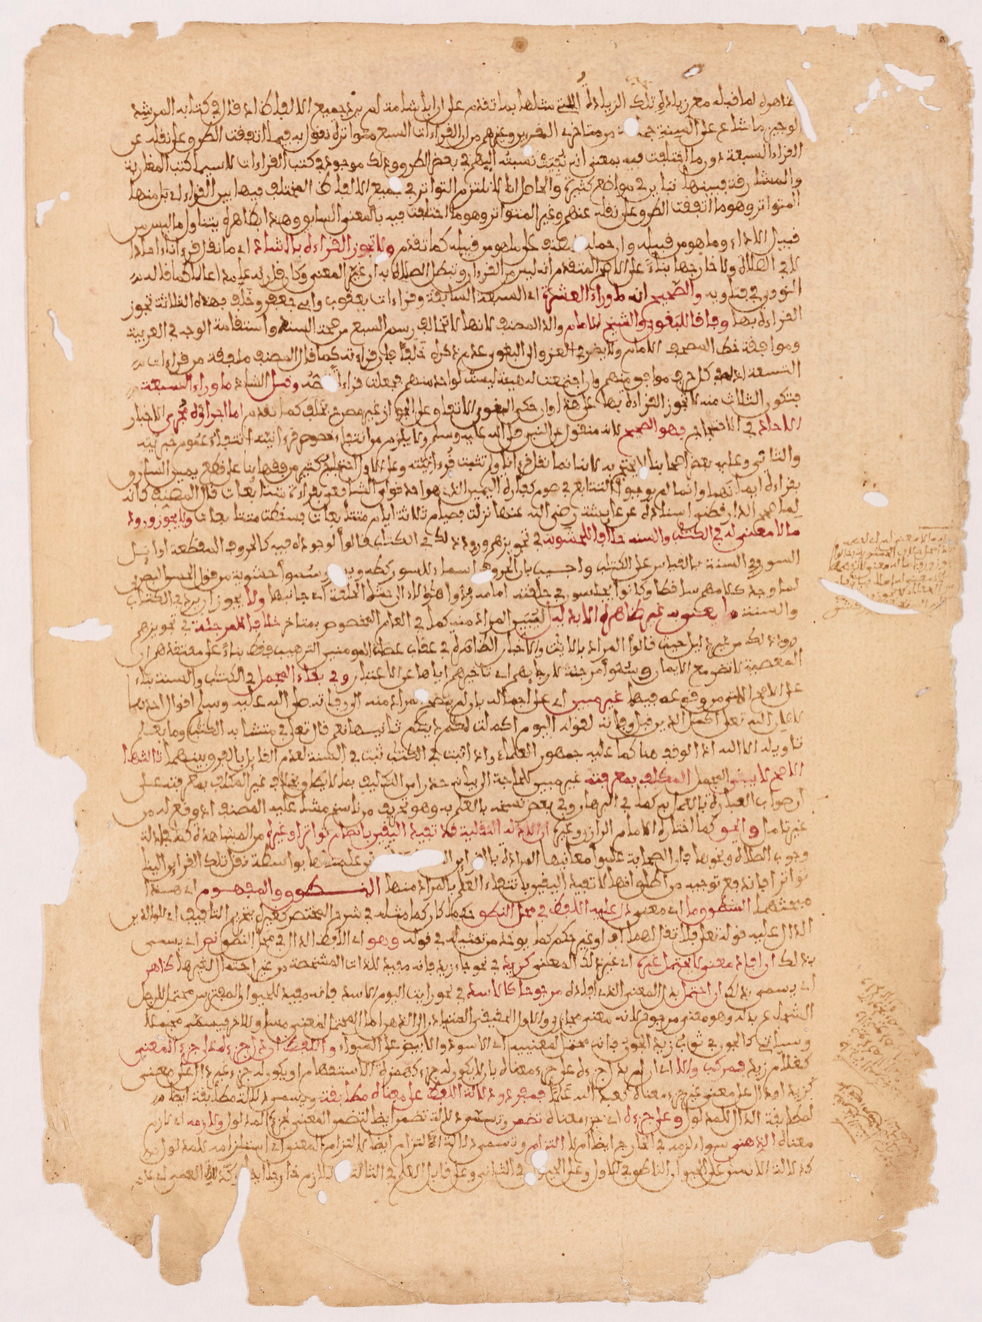 ظاهره لما قبله مع زيادة تلك الزيادة مثلها بما تقدم على أن أبا شامة لم يرد جميع الألفاظ إذ قال في كتابه المرشد
الوجيز ما شاع على ألسنة جماعة من متأخري المقرئين وغيرهم من أن القراءات السبع متواترة نقول به فيما اتفقت الطرق على نقله عن
القراء السبعة دون ما اختلفت فيه بمعنى أنه نفيت نسبته إليهم في بعض الطرق وذلك موجود في كتب القراءات لا سيما كتب المغاربة
والمشارقة فبينهما تباين في مواضع كثيرة والحاصل أنا لا نلتزم التواتر في جميع الألفاظ المختلف فيها بين القراء أي بل منها
المتواتر وهو ما اتفقت الطرق على نقله عنهم وغير المتواتر وهو ما اختلفت فيه بالمعنى السابق وهذا بظاهره يتناول ما ليس من
قبيل الأداء وما هو من قبيله وإن حمله المصنف على ما هو من قبيله كما تقدم ولا تجوز القراءة بالشاذ أي ما نقل قرآنا آحادا
لا في الصلاة ولا خارجها بناء على الأصح المتقدم أنه ليس من القرآن وتبطل الصلاة به إن غير المعنى وكان قارئه عامدا عالما كما قاله
النووي في فتاويه والصحيح أنه ما وراء العشرة أي السبعة السابقة وقراءات يعقوب وأبي جعفر وخلف فهذه الثلاثة تجوز
القراءة بها وفاقا للبغوي والشيخ الإمام والد المصنف لأنها لا تخالف رسم السبع من صحة السند واستقامة الوجه في العربية
وموافقة خط المصحف الإمام ولا يضر في العزو إلى البغوي عدم ذكره خلفا فإن قراءته كما قال المصنف ملفقة من قراءات
التسعة إذ له في كل حرف موافق منهم وإن اجتمعت له هيئة ليست لواحد منهم فجعلت قراءة تخصه وقيل الشاذ ما وراء السبعة
فتكون الثلاث منه لا تجوز القراءة بها على هذا وإن حكى البغوي الاتفاق على الجواز غير مصرح بخلف كما تقدم أما إجراؤه مجرى الأخبار
الآحاد في الاحتجاج فهو الصحيح لأنه منقول عن النبي صلى الله عليه وسلم ولا يلزم من انتفاء خصوص قرآنيته انتفاء عموم خبريته
والثاني وعليه بعض أصحابنا لا يحتج به لأنه إنما نقل قرآنا ولم تثبت قرآنيته وعلى الأول احتجاج كثير من فقهائنا على قطع يمين السارق
بقراءة أيمانهما وإنما لم يوجبوا التتابع في صوم كفارة اليمين الذي هو أحد قولي الشافعي بقراءة متتابعات قال المصنف كأنه
لما صحح الدارقطني إسناده عن عائشة رضي الله عنها نزلت فصيام ثلاثة أيام متتابعات فسقطت متتابعات ولا يجوز ورود
ما لا معنى له في الكتاب والسنة خلافا للحشوية في تجويزهم ورود ذلك في الكتاب قالوا لوجوده فيه كالحروف المقطعة أوائل
السور وفي السنة بالقياس على الكتاب وأجيب بأن الحروف أسماء للسور كطه ويس وسموا حشوية من قول الحسن البصري
لما وجد كلامهم ساقطا وكانوا يجلسون في حلقته أمامه ردوا هؤلاء إلى حشا الحلقة أي جانبها ولا يجوز أن يرد في الكتاب
والسنة ما يعنى به غير ظاهره إلا بدليل يبين المراد منه كما في العام المخصوص بمتأخر خلافا للمرجئة في تجويزهم
ورود ذلك من غير دليل حيث قالوا المراد بالآيات والأخبار الظاهرة في عقاب عصاة المومنين الترهيب فقط بناء على معتقدهم أن
المعصية لا تضر مع الإيمان وسموا مرجئة لإرجائهم أي تأخيرهم إياها عن الاعتبار وفي بقاء المجمل في الكتاب والسنة بناء
على الأصح الآتي من وقوعه فيهما غير مبين أي على إجماله بأن لم يتضح المراد منه إلى وفاته صلى الله عليه وسلم أقوال أحدها
لا لأن الله تعالى أكمل الدين قبل وفاته لقوله اليوم أكملت لكم دينكم ثانيها نعم قال تعالى في متشابه الكتاب وما يعلم
تاويله إلا الله إذ الوقف هنا كما عليه جمهور العلماء وإذا ثبت في الكتاب ثبت في السنة لعدم القائل بالفرق بينهما ثالثها
الأصح لا يبقى المجمل المكلف بمعرفته غير مبين للحاجة إلى بيانه حذرا من التكليف بما لا يطاق بخلاف غير المكلف بمعرفته على
أن صواب العبارة بالعمل به كما في البرهان وفي بعض نسخه بالعلم به وهو تحريف من ناسخ مشى عليه المصنف إذ وقع له من
غير تأمل والحق كما اختاره الإمام الرازي وغيره أن الأدلة النقلية قد تفيد اليقين بانضمام تواتر أو غيره من المشاهدة كما في أدلة
وجوب الصلاة ونحوها فإن الصحابة علموا معانيها المرادة بالقرائن المشاهدة ونحن علمناها بواسطة نقل تلك القرائن إلينا
تواترا فاندفع توجيه من أطلق أنها لا تفيد اليقين بانتفاء العلم بالمراد منها المنطوق والمفهوم أي هذا
مبحثهما المنطوق ما أي معنى دل عليه اللفظ في محل النطق حكما كان كما مثله في شرح المختصر كغيره بتحريم التأفيف أي للوالدين
الدال عليه قوله تعالى فلا تقل لهما أف أو غير حكم كما يوخذ من تمثيله في قوله وهو أي اللفظ الدال في محل النطق نص أي يسمى
بذلك إن أفاد معنى لا يحتمل غيره أي غير ذلك المعنى كزيد في نحو جاء زيد فإنه مفيد للذات المشخصة من غير احتمال لغيرها ظاهر
أي يسمى بذلك إن احتمل بدل المعنى الذي أفاده مرجوحا كالأسد في نحو رأيت اليوم الأسد فإنه مفيد للحيوان المفترس محتمل للرجل
الشجاع بدله وهو معنى مرجوح لأنه معنى مجازي والأول الحقيقي المتبادر إلى الذهن أما المحتمل لمعنى مساو للآخر فيسمى مجملا
وسيأتي كالجون في ثوب زيد الجون فإنه محتمل لمعنييه أي الأسود والأبيض على السواء واللفظ إن دل جزؤه على جزء المعنى
كغلام زيد فمركب وإلا أي وإن لم يدل جزءه على جزء معناه بأن لا يكون له جزء كهمزة الاستفهام أو يكون له جزء غير دال على معنى
كزيد أو دال على معنى غير جزء معناه كعبد الله علما فمفرد ودلالة اللفظ على معناه مطابقة وتسمى دلالة مطابقة أيضا
لمطابقة الدال للمدلول وعلى جزئه أي جزء معناه تضمن وتسمى دلالة تضمن أيضا لتضمن المعنى لجزء المدلول ولازمه أي لازم
معناه الذهني سواء لزمه في الخارج أيضا أم لا التزام وتسمى دلالة الالتزام أيضا لالتزام المعنى أي استلزامه للمدلول
كدلالة الإنسان على الحيوان الناطق في الأول وعلى الحيوان في الثاني وعلى قابل العلم في الثالث اللازم خارجا أيضا